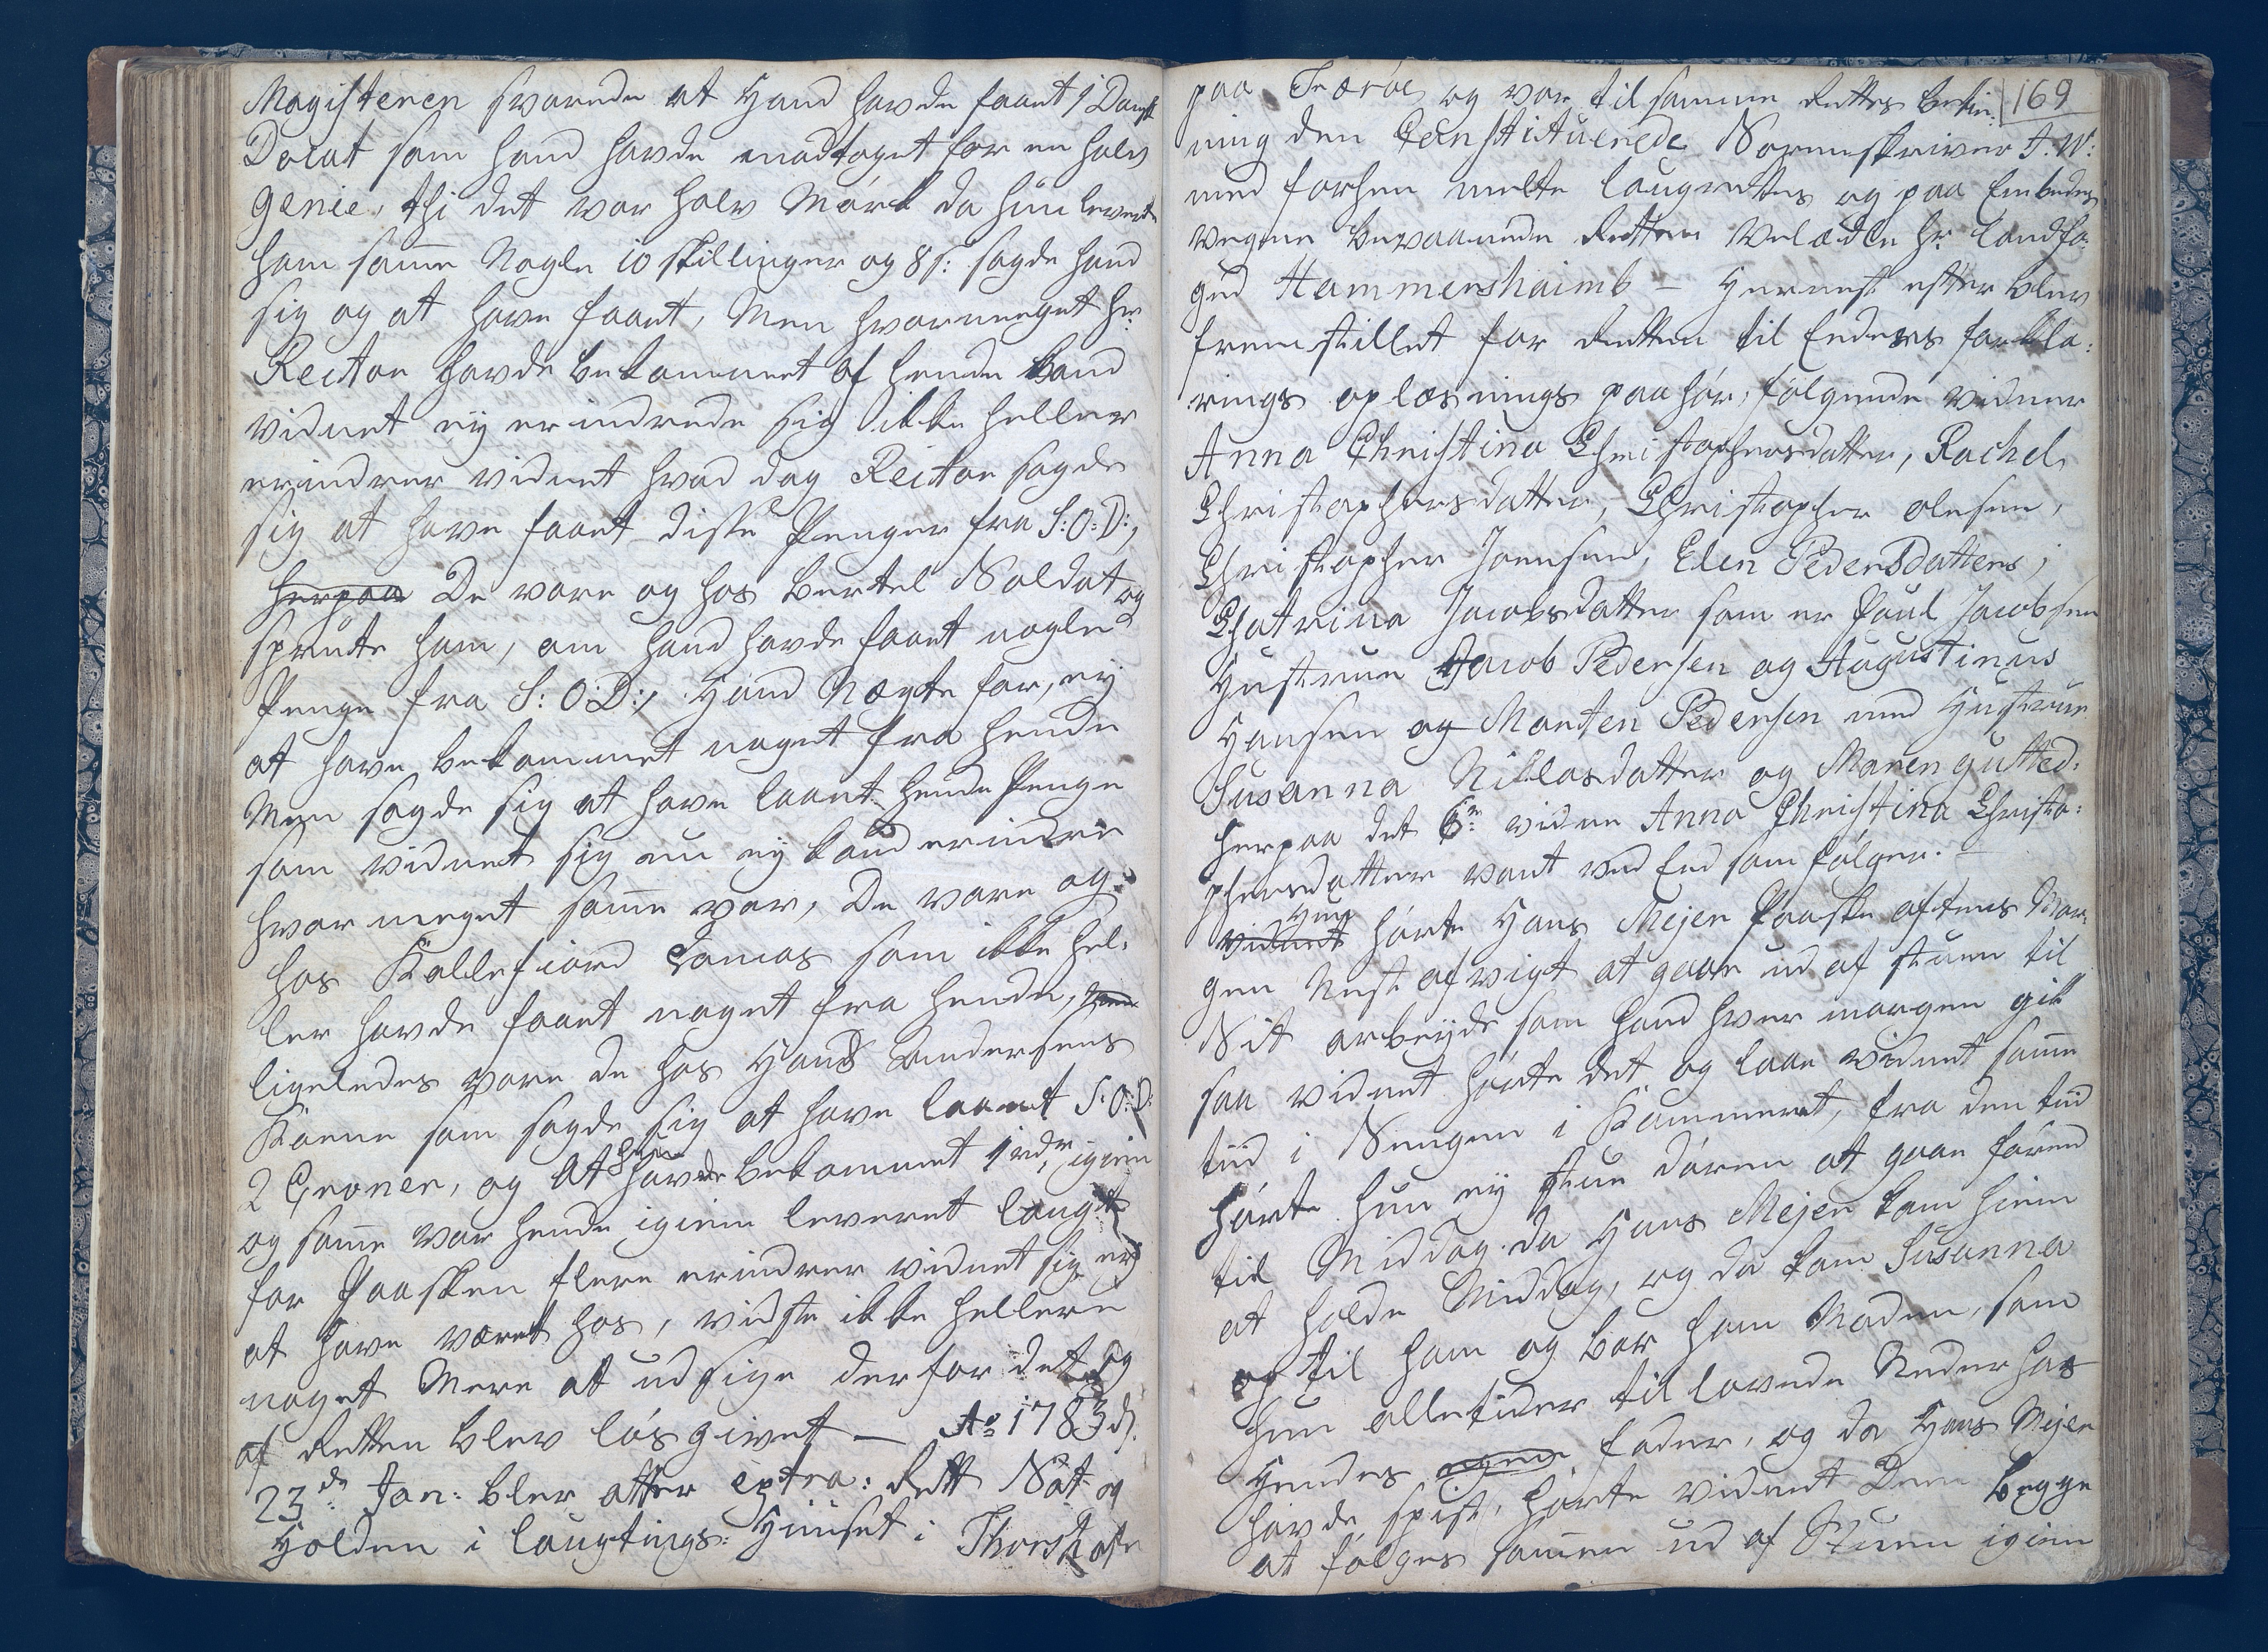 Magisteren svarede at Hand havde faaet 1 Dansk
Ducat som hand havde modtaget for en halv
Genie, thi det var halv Mörk da hun leverte
ham samme Nogle 10 skillinger og 8 s: sagde hand
sig og at have faaet, Men hvormeget hr.
Rector havde bekommet af hende kand
vidnet ey erindrede sig ikke heller
erindrer vidnet hvad dag Rector sagde
sig at have faaet disse Penger fra S: O: D:,
herpaa De vare og hos Bertel Soldat og
spurte ham, om hand havde faaet nogle
Penge fra S: O: D:, Hand Nægte for, ey
at have bekommet noget fra hende
Men sagde sig at have laant hende Penge
som vidnet sig nu ey kand erindre
hvor meget samme var, De vare og
hos Kollefiord Tomas som ikke hel:
ler havde faaet noget fra hende,
ligeledes vare de hos Hans Andersens
Kone som sagde sig at have laant S: O: D:
2 Croner, og at hun havde bekommet 1 rdr igien
og samme var hende igien leveret langt
for Paasken flere erindrer vidnet sig ey
at have været hos, vidste ikke hellere
noget Mere at udsige derfor det og
af Retten blev lös givet — Ao 1783 d.
23de Jan: blev atter extra: Rett Sat og
Holden i laugtings: Huuset i Thorshafn
paa Færöe og var til samme Rettes betie: 169
ning den Constituerede Sorenskriver J. W:
med forhen melte laugrettes og paa Embeds
vegne bevaanede Retten Velædle hr. landfo:
ged Hammershaimb — Hernest efter blev
fremstillet for Retten til Eedens forkla:
rings oplæsnings paahör, fölgende vidner
Anna Christina Christophersdatter, Rachel
Christophersdatter, Christopher olesen,
Christopher Joensen, Elen PedersDatters,
Chatrina Jacobsdatter som er Poul Jacobsen
Hustrue Jacob Pedersen og Augustinus
Hansen og Morten Pedersen med Hustrue
Susanna Niklasdatter og Maren Gutted:
herpaa det 6te vidne Anna Christina Christo:
phersdatter vant ved Eed som fölger. —
vidnet Hun hörte Hans Mejer Paaske aftens Mor:
gen Nest afvigt at gaae ud af stuen til
Sit arbeyde som hand hver morgen gik
saa vidnet hörte det og laae vidnet samme
tiid i Sengen i Kammeret, fra den tiid
hörte hun ey stue dören at gaae förend
til Middag da Hans Mejer kom hiem
at holde Middag, og da kom Susanna
op til ham og bar ham Maden, som
hun alletider til lavede Neder hos
Hendes Fader, og da Hans Mejer
havde spist, hörte vidnet Dem begge
at fölges sammen ud af Stuen igien